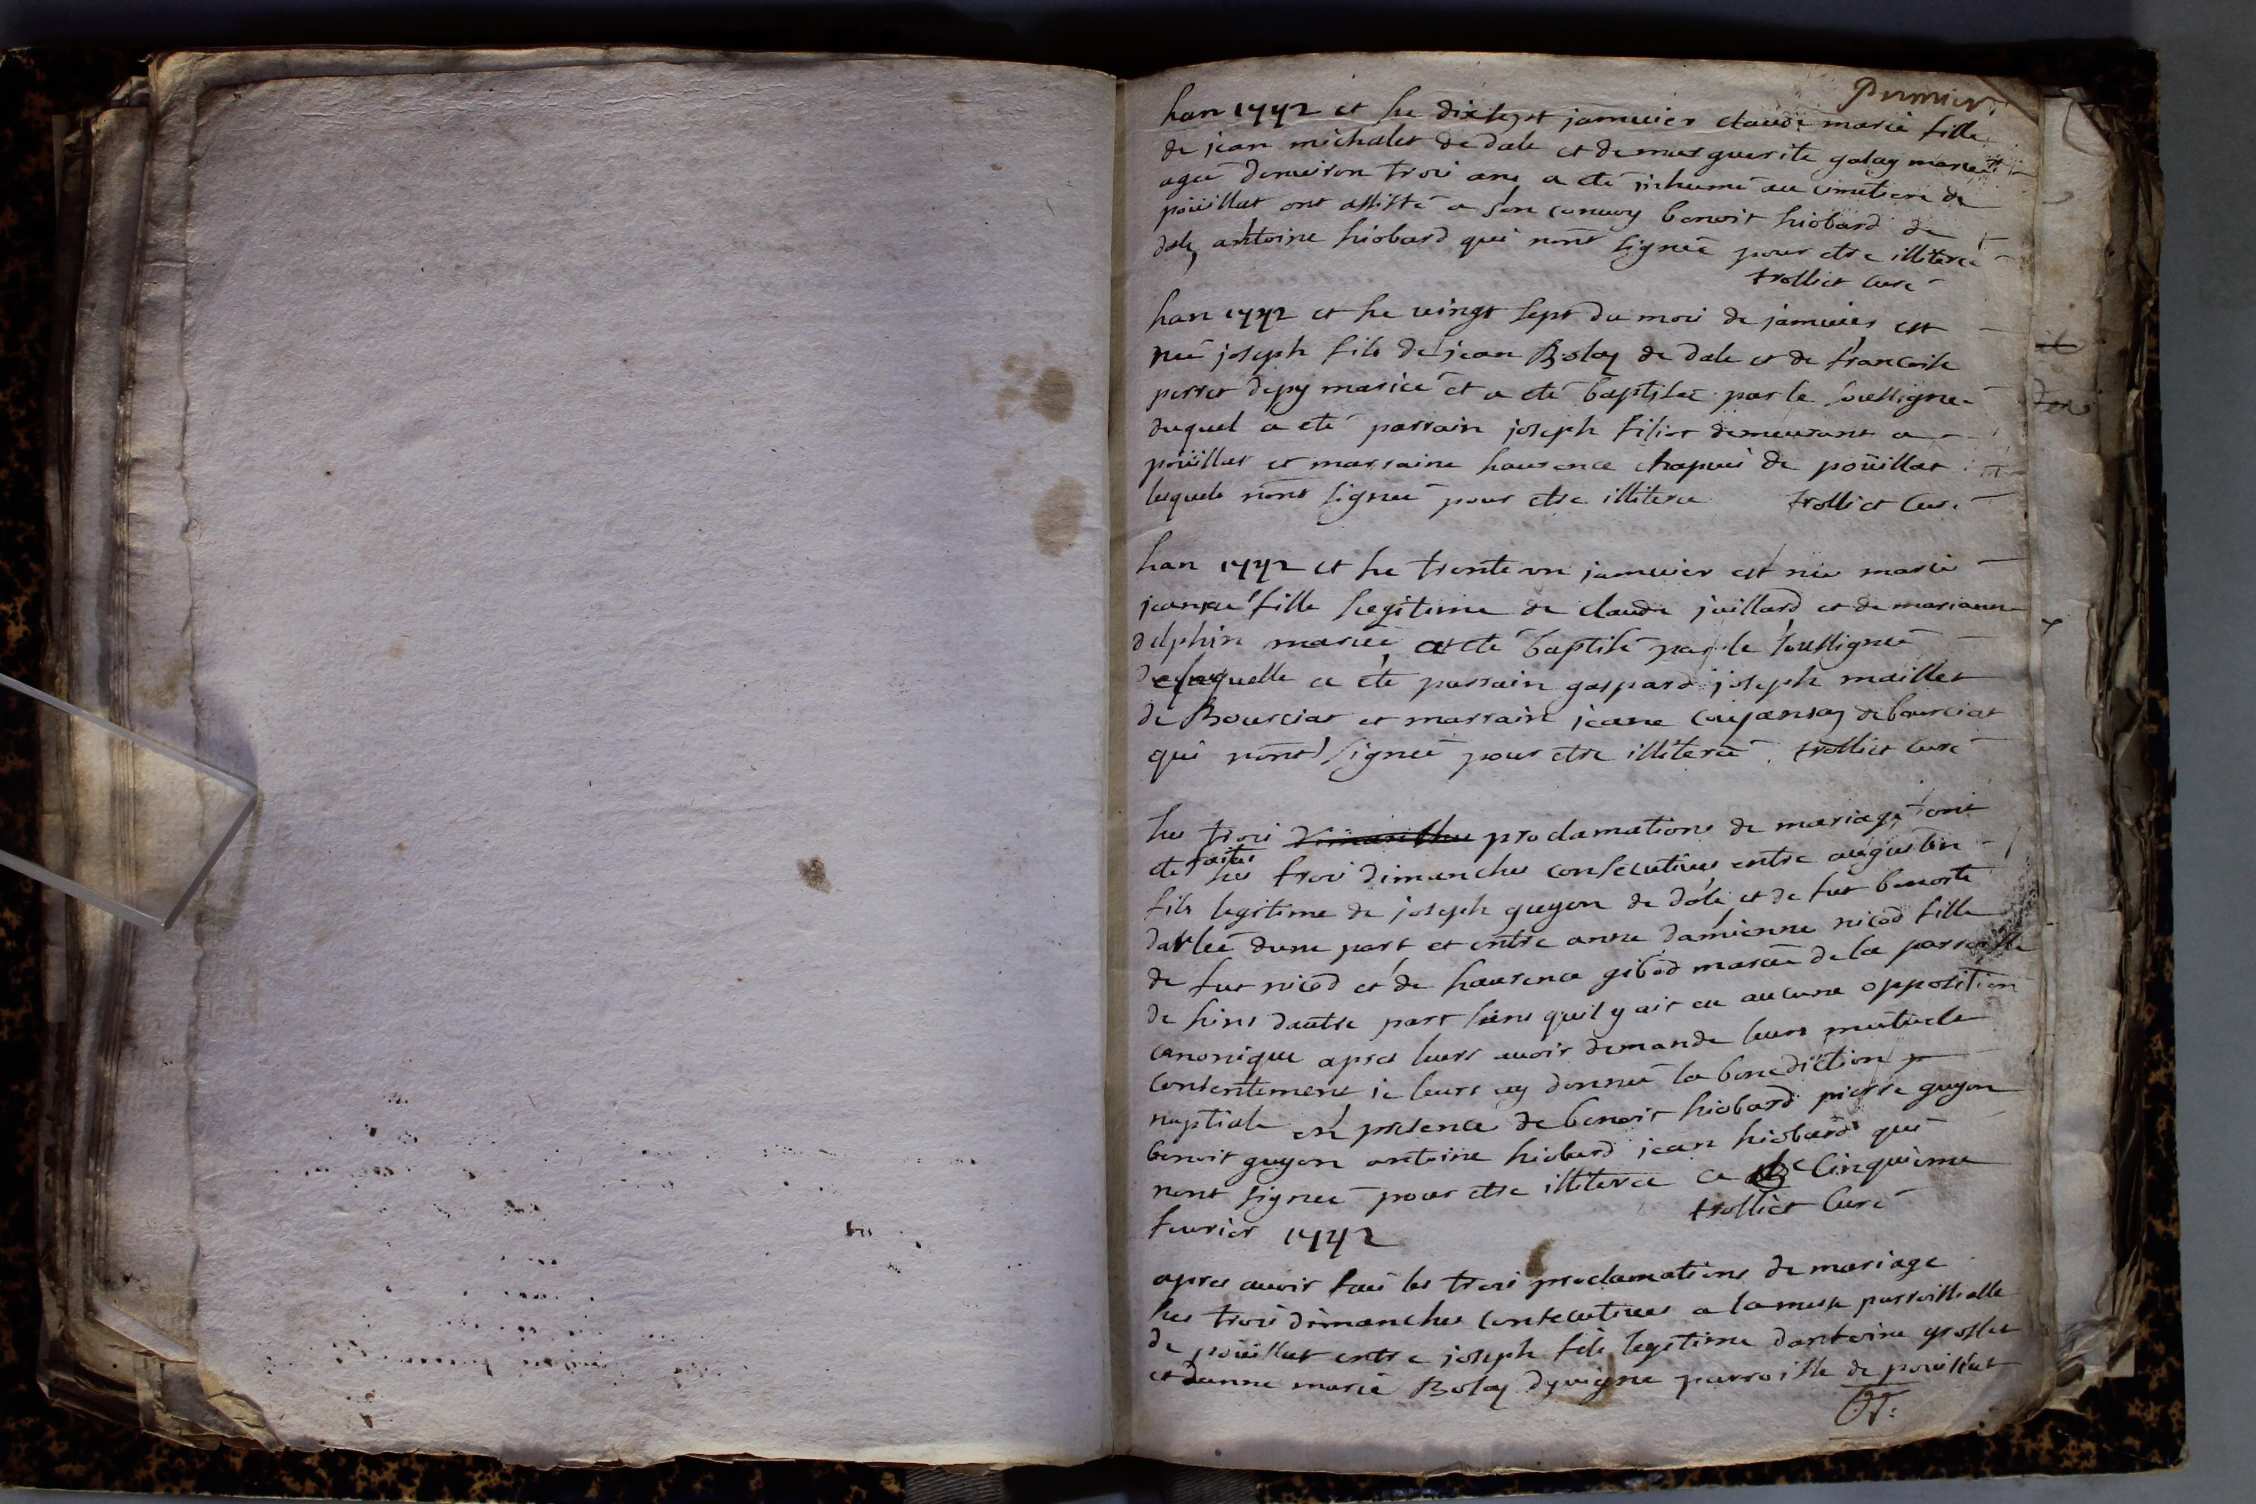 Premier
han 1772 et he dixsept januier claude marie fille
de jean michalet de dale et de marguerite galay mariee
agee denuiron trois ans a eté inhumé au cimetiere de
poüillat ont assisté a son conuoy benoit hiobard de
dale, antoine hiobard qui nont signée pour etre illiteré
trolliet curé
han 1772 et he vingt sept du mois de januier est
neé joseph fils de jean Bolay de dale et de francoise
perret depy mariée et a eté baptisée par le soussignée
duquel a eté parrain joseph filiot demeurant a
poüillat et marraine haurence chapuis de poüillat
lesquels nont signeé pour etre illiteré trolliet curé
han 1772 et he trente un januier est née marie
jeanne fille legitime de claude juillard et de marianne
delphin mariée a eté baptisé par le soussignée
de laquelle a eté parrain gaspard joseph maillet
de Bourciat et marrain jeane Coujansay de bourciat
qui nont signeé pour etre illiteré trolliet curé
hes trois proclamations de mariage ont
eté faites hes trois dimanches consecutiues entre augustin
fils legitime de joseph guyon de dole et de fut benoite
darleé dune part et entre anne damienne nicod fille
de fut nicod et de haurence gibod mariée de la parroisse
de hins dautre part sans quil y ait eu aucune opposition
canonique apres leurs auoir demande leurs mutuele
consentement je leurs ay donneé la benediction
nuptiale en presence de benoit hiobard pierre guyon
benoit guyon antoine hiobard jean hiobard qui
nont signeé pour etre illiteré ce Cinquieme
feurier 1772 trolliet curé
apres auoir fait les trois proclamations de mariage
hes trois dimanches consecutiues a la messe parroissialle
de poüillat entre joseph fils legitime dantoine grosset
et danne marie Bolay dyuigne parroisse de poüillat